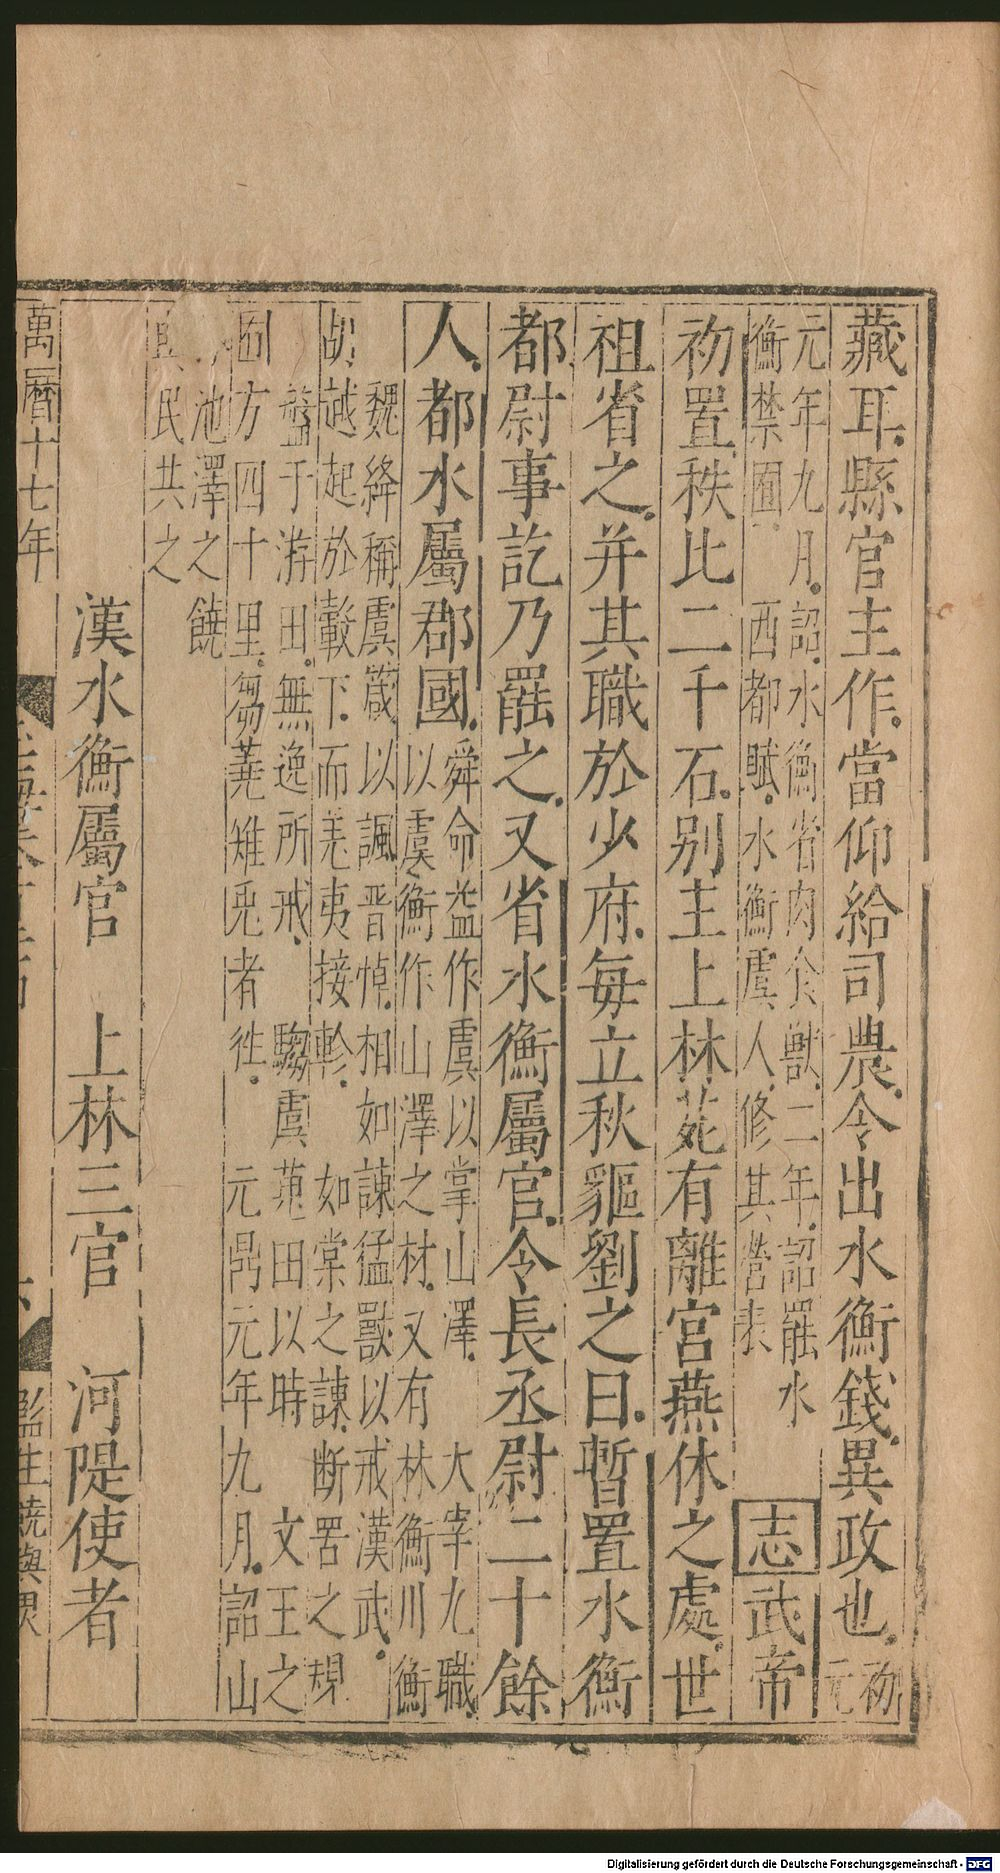 藏耳縣官主作當仰給司農今出水衡錢異政也初
元
元年九月詔水衡省肉食獸二年詔罷水
衡禁囿西都賦水衡虞人修其營表
志武帝
初置秩比二千石别主上林苑有離宮燕休之處世
祖省之并其職於少府每立秋貙劉之日暫置水衡
都尉事訖乃罷之又省水衡屬官令長丞尉二十餘
人都水屬郡國
舜命益作虞以掌山澤 大宰九職
以虞衡作山澤之材又有林衡川衡
魏絳稱虞箴以諷晋悼相如諫猛獸以戒漢武
胡越起於轂下而羌夷接軫 如棠之諫斷罟之規
盤于游田無逸所戒 騶虞蒐田以時 文王之
囿方四十里芻蕘雉兎者徃 元鼎元年九月詔山
池澤之饒
與民共之
漢水衡屬官 上林三官 河隄使者
萬曆十七年
監生
Digitalisierung gefördert durch die Deutsche Forschungsgemeinschaft - DFG